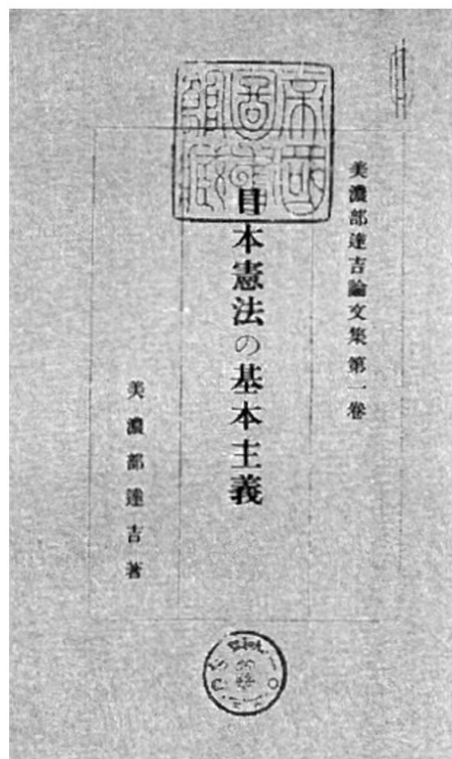 美濃部達吉論文集 第一卷
日本憲法の基本主義
美濃部達吉著
帝國圖書館藏